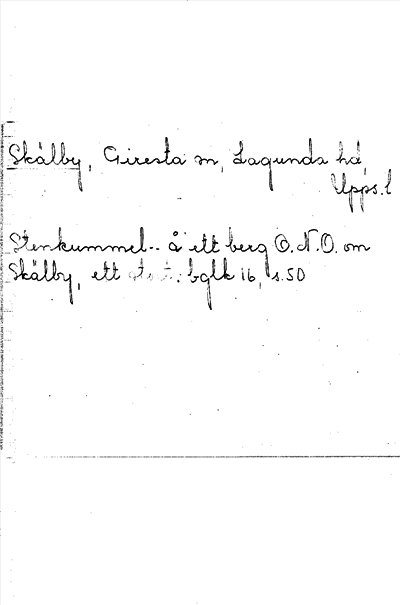 Skälby, Giresta sn, Lagunda hd,
Upps. l
Stenkummel-- å ett berg O.N.O. om
Skälby, ett stort. bglk 16, s. 50